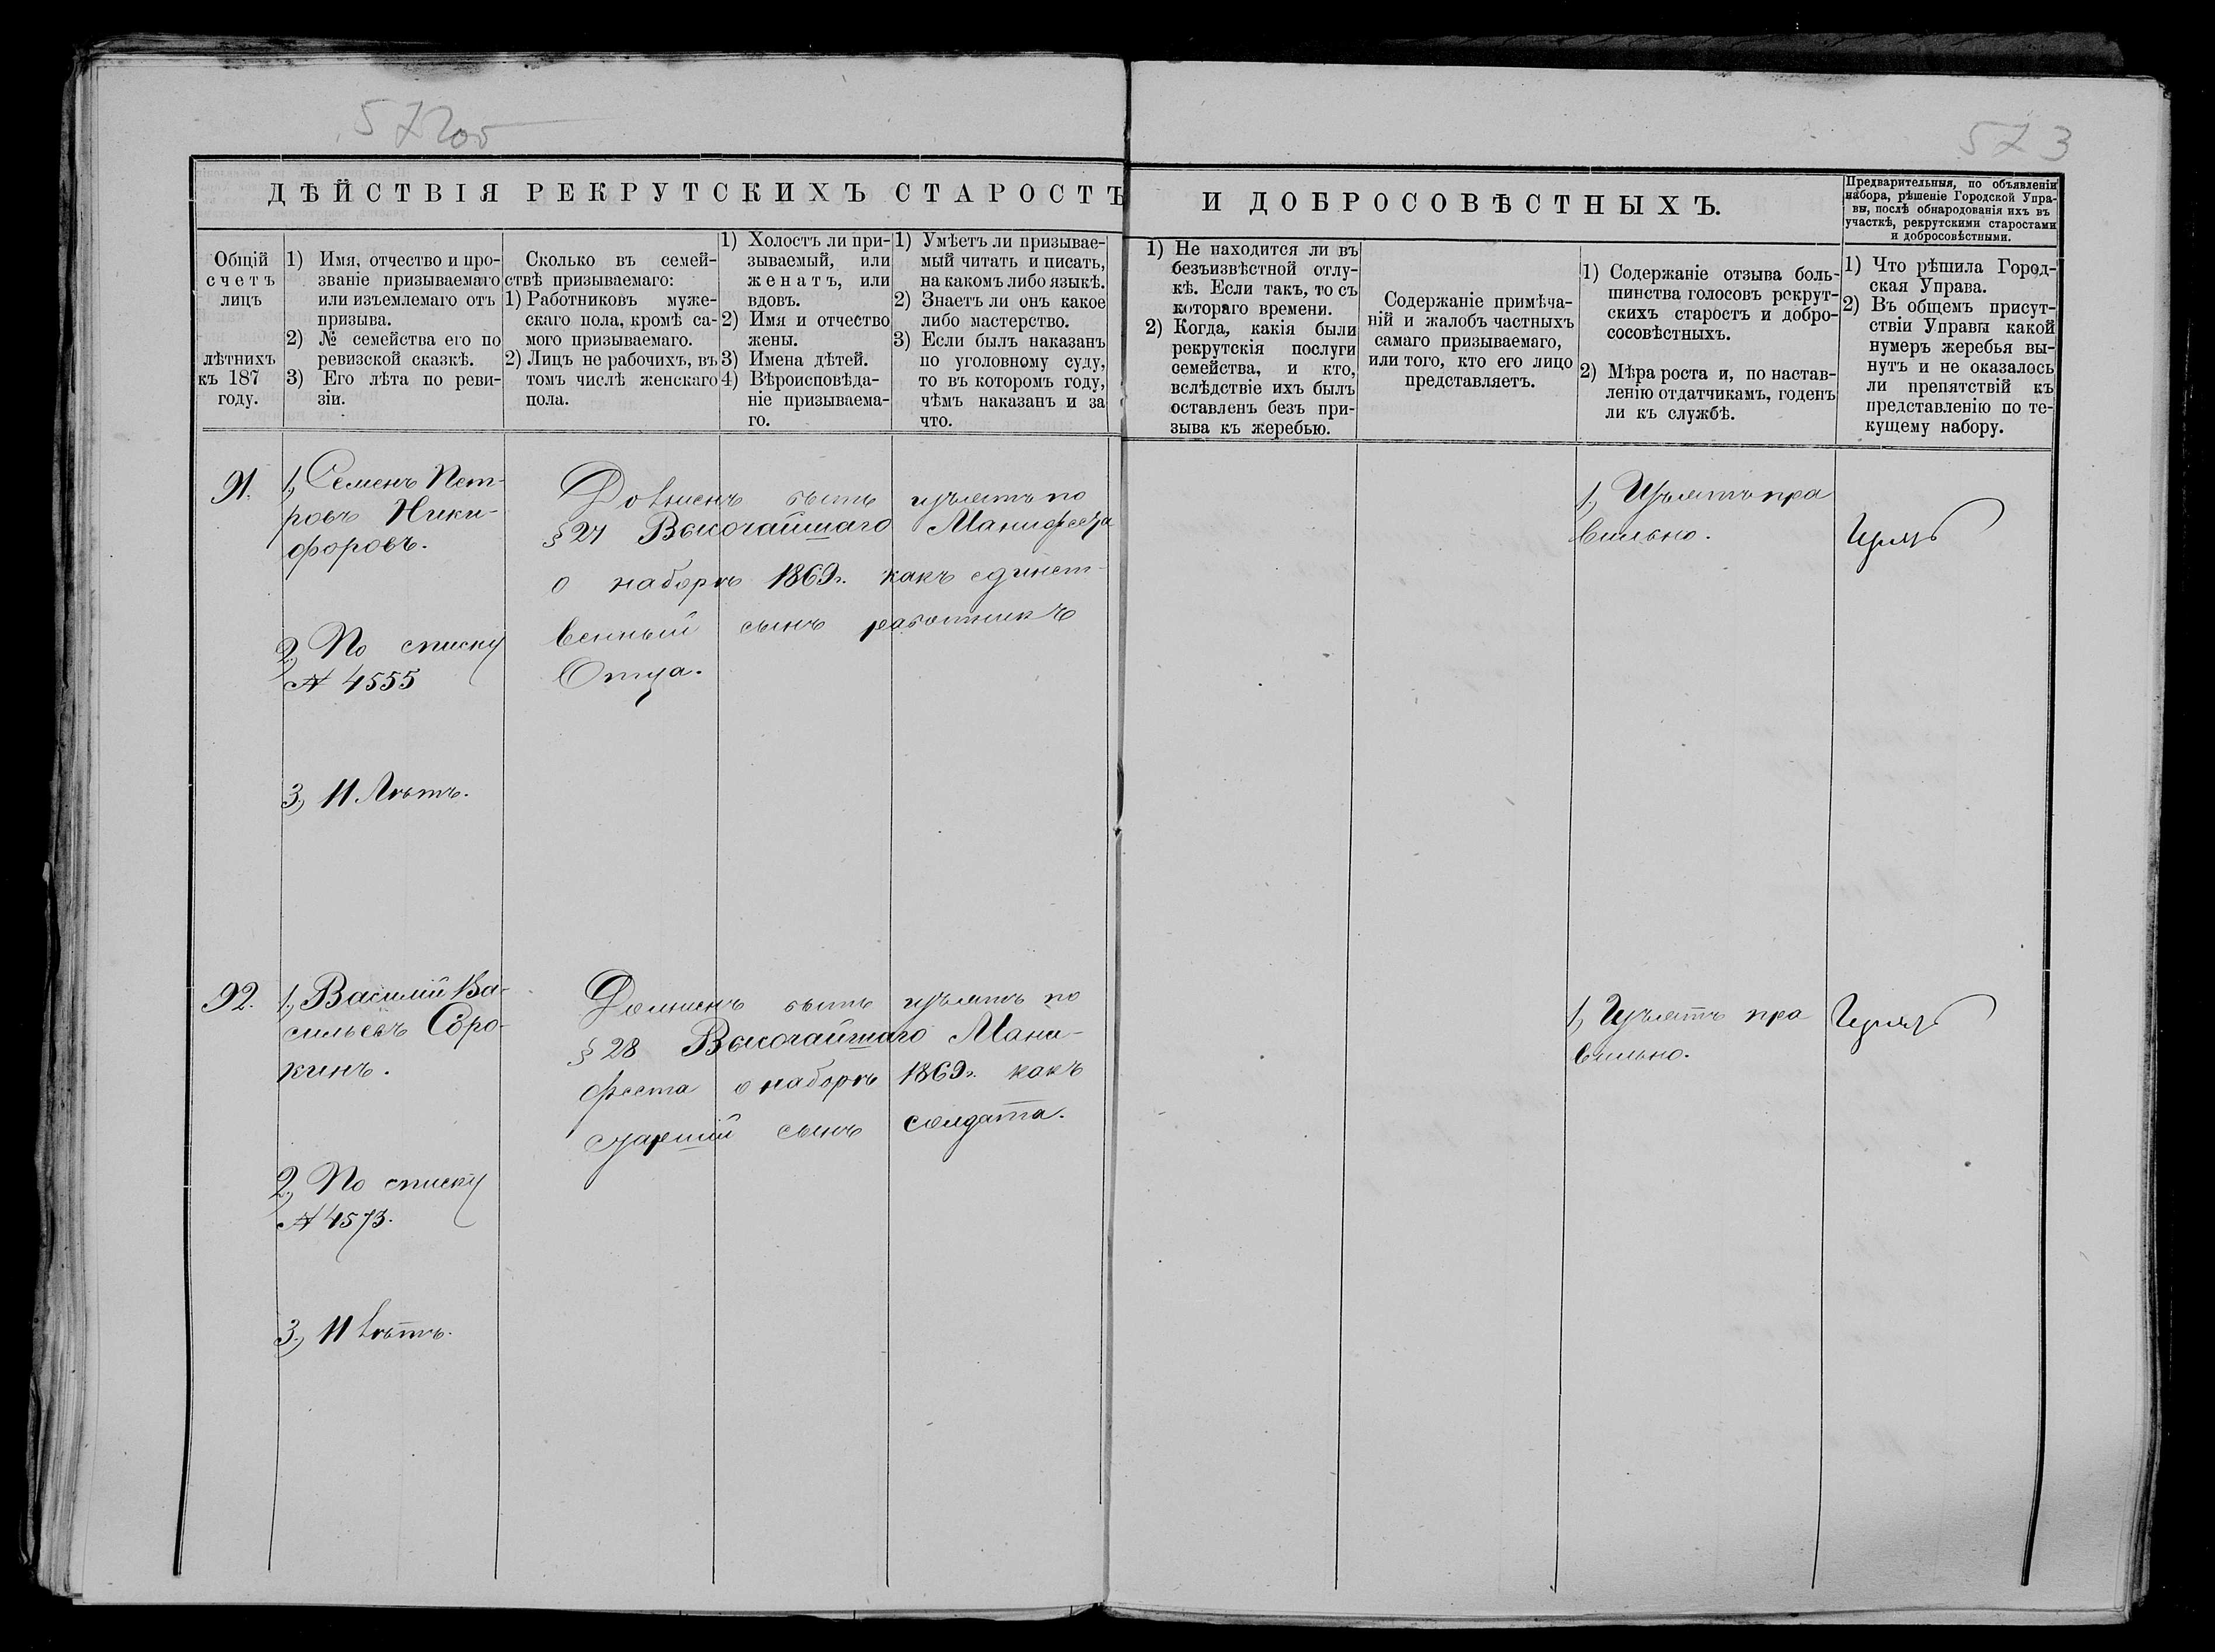 572об
573
ДѢЙСТВІЯ РЕКРУТСКИХЪ СТАРОСТЪ
И ДОБРОСОВѢСТНЫХЪ.
Предварительныя, по объявленіи
набора, рѣшеніе Городской Упра-
вы, послѣ обнародованія ихъ въ
участкѣ, рекрутскими старостами
и добросовѣстными.
Общій
счетъ
лицъ
лѣтнихъ
къ 187
году.
1) Имя, отчество и про-
званіе призываемаго
или изъемлемаго отъ
призыва.
2) № семейства его по
ревизской сказкѣ.
3) Его лѣта по реви-
зіи.
Сколько въ семей-
ствѣ призываемаго:
1) Работниковъ муже-
скаго пола, кромѣ са-
мого призываемаго.
2) Лицъ не рабочихъ, въ
томъ числѣ женскаго
пола.
1) Холостъ ли при-
зываемый, или
женатъ, или
вдовъ.
2) Имя и отчество
жены.
3) Имена дѣтей.
4) Вѣроисповѣда-
ніе призываема-
го.
1) Умѣетъ ли призывае-
мый читать и писать,
на какомъ либо языкѣ.
2) Знаетъ ли онъ какое
либо мастерство.
3) Если былъ наказанъ
по уголовному суду,
то въ которомъ году,
чѣмъ наказанъ и за
что.
1) Не находится ли въ
безъизвѣстной отлу-
кѣ. Если такъ, то съ
котораго времени.
2) Когда, какія были
рекрутскія послуги
семейства, и кто,
вслѣдствіе ихъ былъ
оставленъ безъ при-
зыва къ жеребью.
Содержаніе примѣча-
ній и жалобъ частныхъ
самаго призываемаго,
или того, кто его лицо
представляетъ.
1) Содержаніе отзыва боль-
шинства голосовъ рекрут-
скихъ старостъ и добро-
сосовѣстныхъ.
2) Мѣра роста и, по настав-
ленію отдатчикамъ, годенъ
ли къ службѣ.
1) Что рѣшила Город-
ская Управа.
2) Въ общемъ присут-
ствіи Управы какой
нумеръ жеребья вы-
нутъ и не оказалось
ли препятствій къ
представленію по те-
кущему набору.
91.
1, Семенъ Пет-
ровъ Ники-
форовъ.
2, По списку
№ 4555
3, 11 Лѣтъ.
Долженъ быть изъятъ по
§ 27 Высочайшаго Манифеста
о наборѣ 1869г. какъ единст-
венный сынъ работникъ
Отца.
1, Изъятъ пра
вильно.
Изъятъ
92.
1, Василій Ва-
сильевъ Соро-
кинъ.
2, По списку
№ 4573.
3, 11 лѣтъ.
Долженъ быть изъятъ по
§ 28 Высочайшаго Мани-
феста о наборѣ 1869г. какъ
старшій сынъ солдата.
1, Изъятъ пра
вильно.
Изъятъ